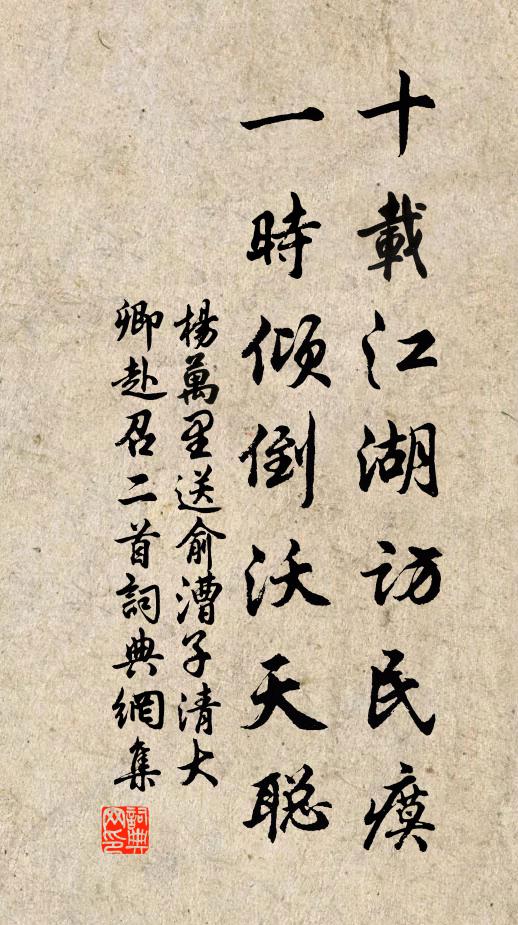 十載江湖訪民瘼
一時傾倒沃天聪
楊萬里送俞漕子清大
卿赴召二首詞典網集
詞典网印